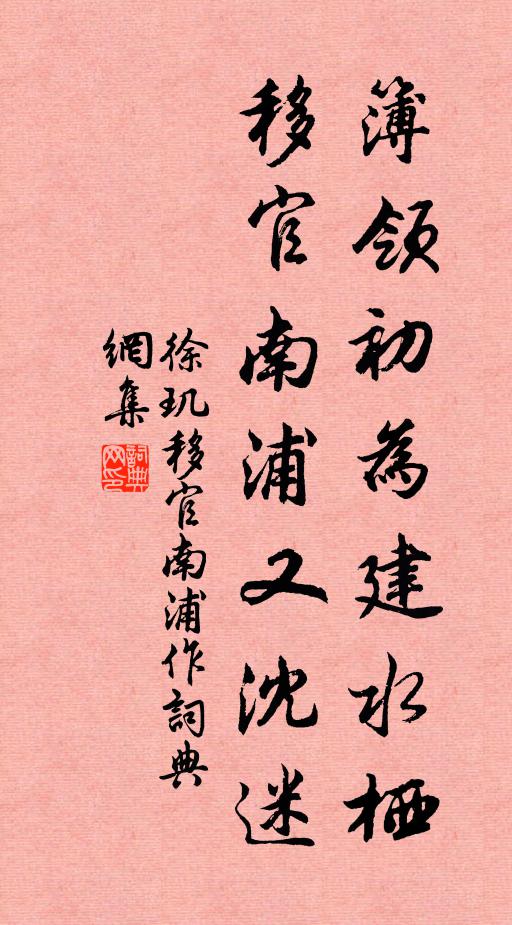 簿領初為建水栖
移官南浦又沈迷
徐玑移官南浦作詞典
網集
詞典网印